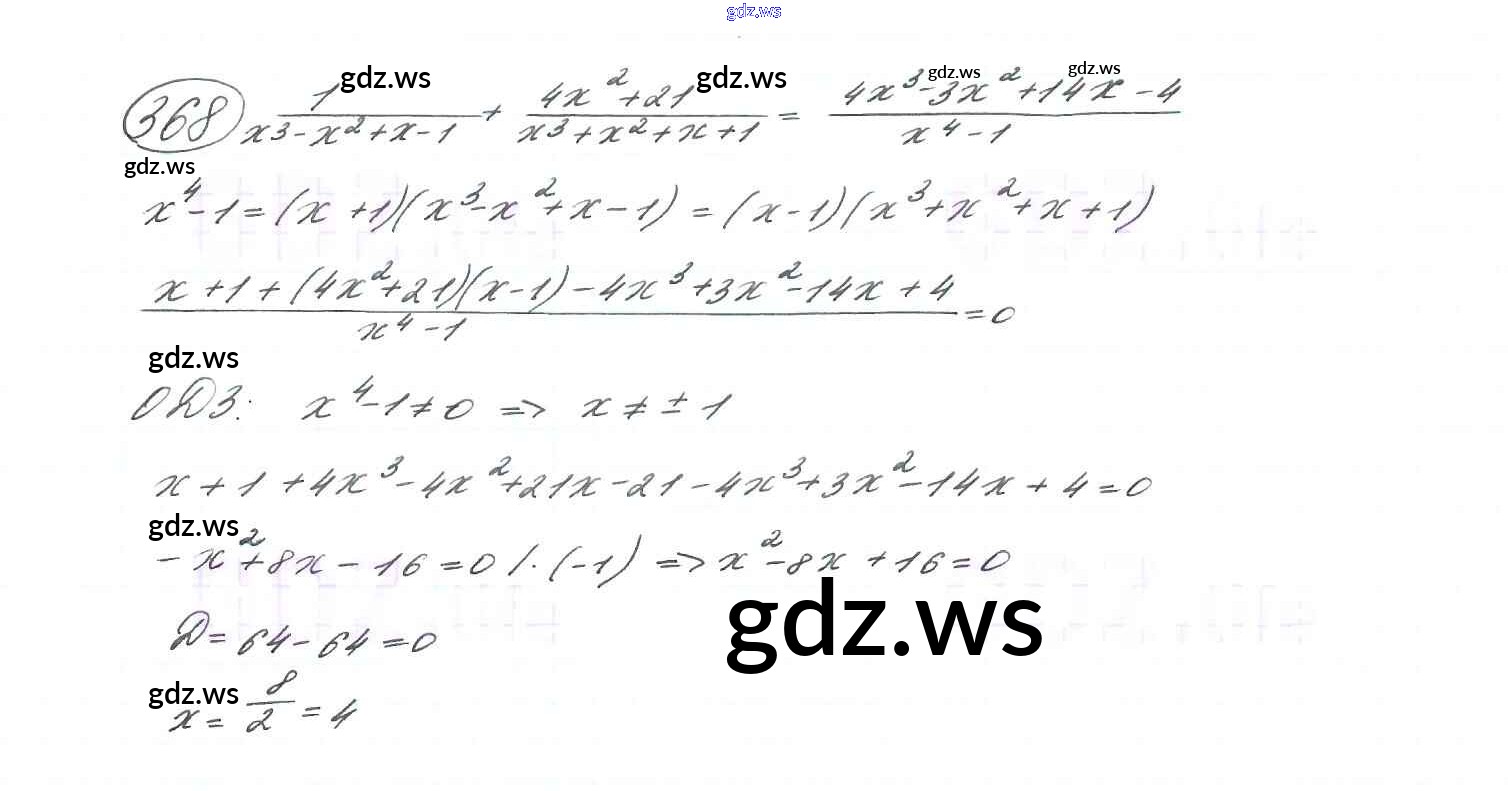 gdz.ws
368 1/(x³-x²+x-1) + (4x²+21)/(x³+x²+x+1) = (4x³-3x²+14x-4)/(x⁴-1)
gdz.ws gdz.ws gdz.ws gdz.ws
gdz.ws
x⁴-1=(x+1)(x³-x²+x-1)=(x-1)(x³+x²+x+1)
(x+1+(4x²+21)(x-1)-4x³+3x²-14x+4)/(x⁴-1)=0
gdz.ws
ОДЗ: x⁴-1≠0 => x≠±1
x+1+4x³-4x²+21x-21-4x³+3x²-14x+4=0
gdz.ws
-x²+8x-16=0 /·(-1) => x²-8x+16=0
gdz.ws
Д=64-64=0
gdz.ws
x=8/2=4